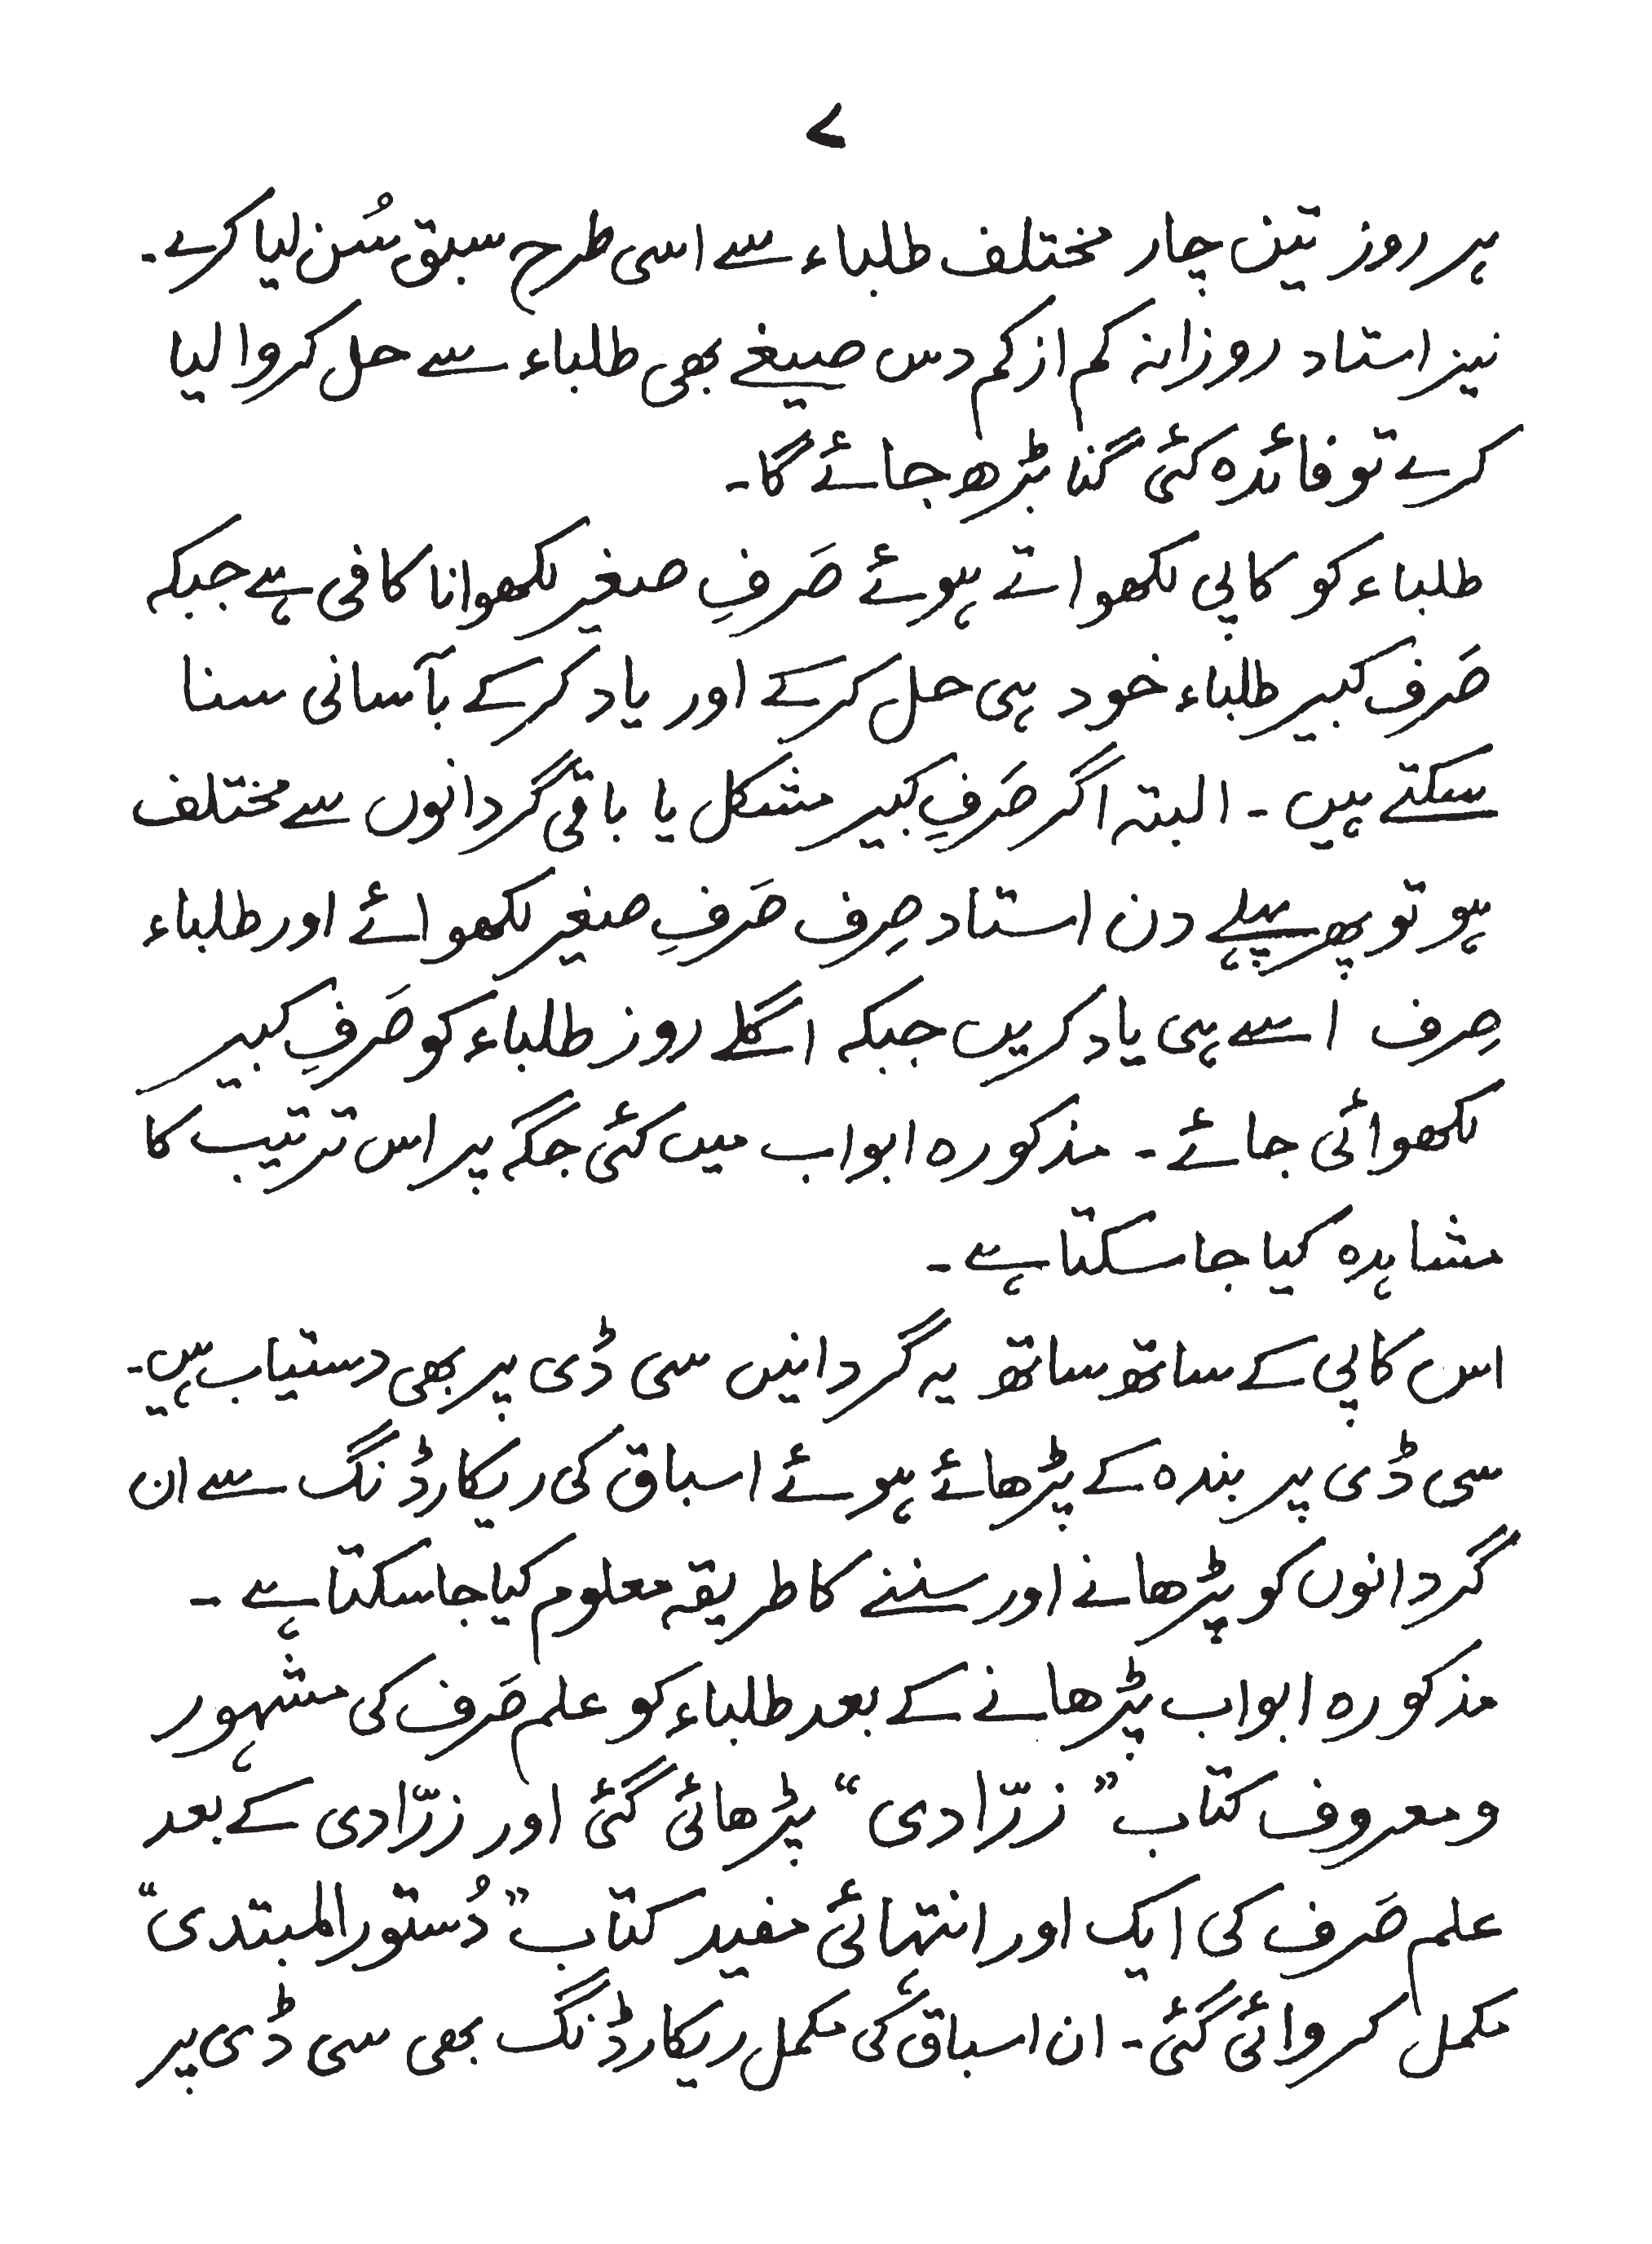 ۷
ہر روز تین چار مختلف طلباء سے اسی طرح سبق سُن لیا کرے۔
نیز استاد روزانہ کم از کم دس صیغے بھی طلباء سے حل کروا لیا
کرے تو فائدہ کئی گنا بڑھ جائے گا۔
طلباء کو کاپی لکھواتے ہوئے صَرفِ صغیر لکھوانا کافی ہے جبکہ
صَرف کبیر طلباء خود ہی حل کرکے اور یاد کرکے بآسانی سنا
سکتے ہیں ۔ البتہ اگر صَرفِ کبیر مشکل یا باقی گردانوں سے مختلف
ہو تو پھر پہلے دن استاد صِرف صَرفِ صغیر لکھوائے اور طلباء
صِرف اسے ہی یاد کریں جبکہ اگلے روز طلباء کو صَرفِ کبیر
لکھوائی جائے ۔ مذکورہ ابواب میں کئی جگہ پر اس ترتیب کا
مشاہدہ کیا جا سکتا ہے ۔
اس کاپی کے ساتھ ساتھ یہ گردانیں سی ڈی پر بھی دستیاب ہیں۔
سی ڈی پر بندہ کے پڑھائے ہوئے اسباق کی ریکارڈنگ سے ان
گردانوں کو پڑھانے اور سننے کا طریقہ معلوم کیا جا سکتا ہے ۔
مذکورہ ابواب پڑھانے کے بعد طلباء کو علم صَرف کی مشہور
و معروف کتاب ” زرّادی “ پڑھائی گئی اور زرّادی کے بعد
علم صَرف کی ایک اور انتہائی مفید کتاب ” دُستور المبتدی “
مکمل کروائی گئی ۔ ان اسباق کی مکمل ریکارڈنگ بھی سی ڈی پر